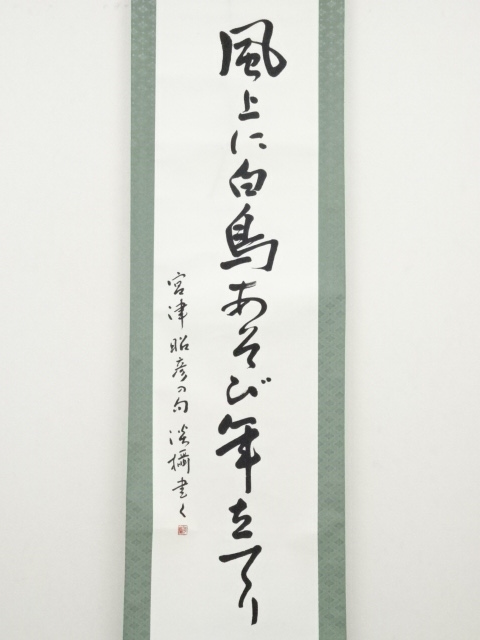 風上に白鳥あそび年立てり
宮津昭彦の句 淡攝書く